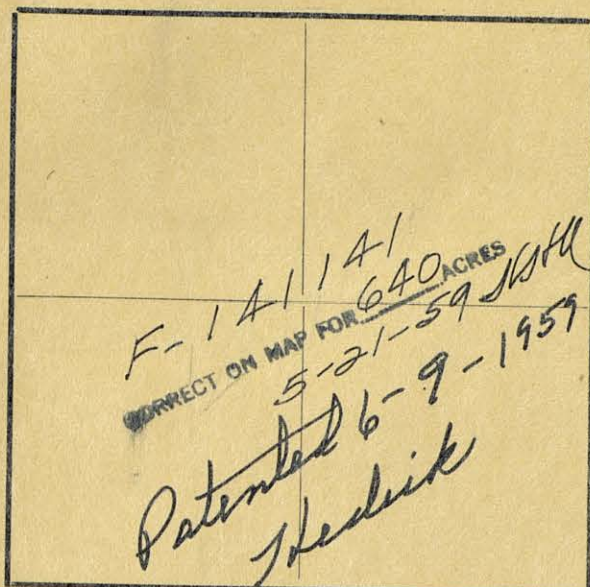 F-141141
CORRECT ON MAP FOR 640 ACRES
5-21-59
Patented 6-9-1959
Hedick